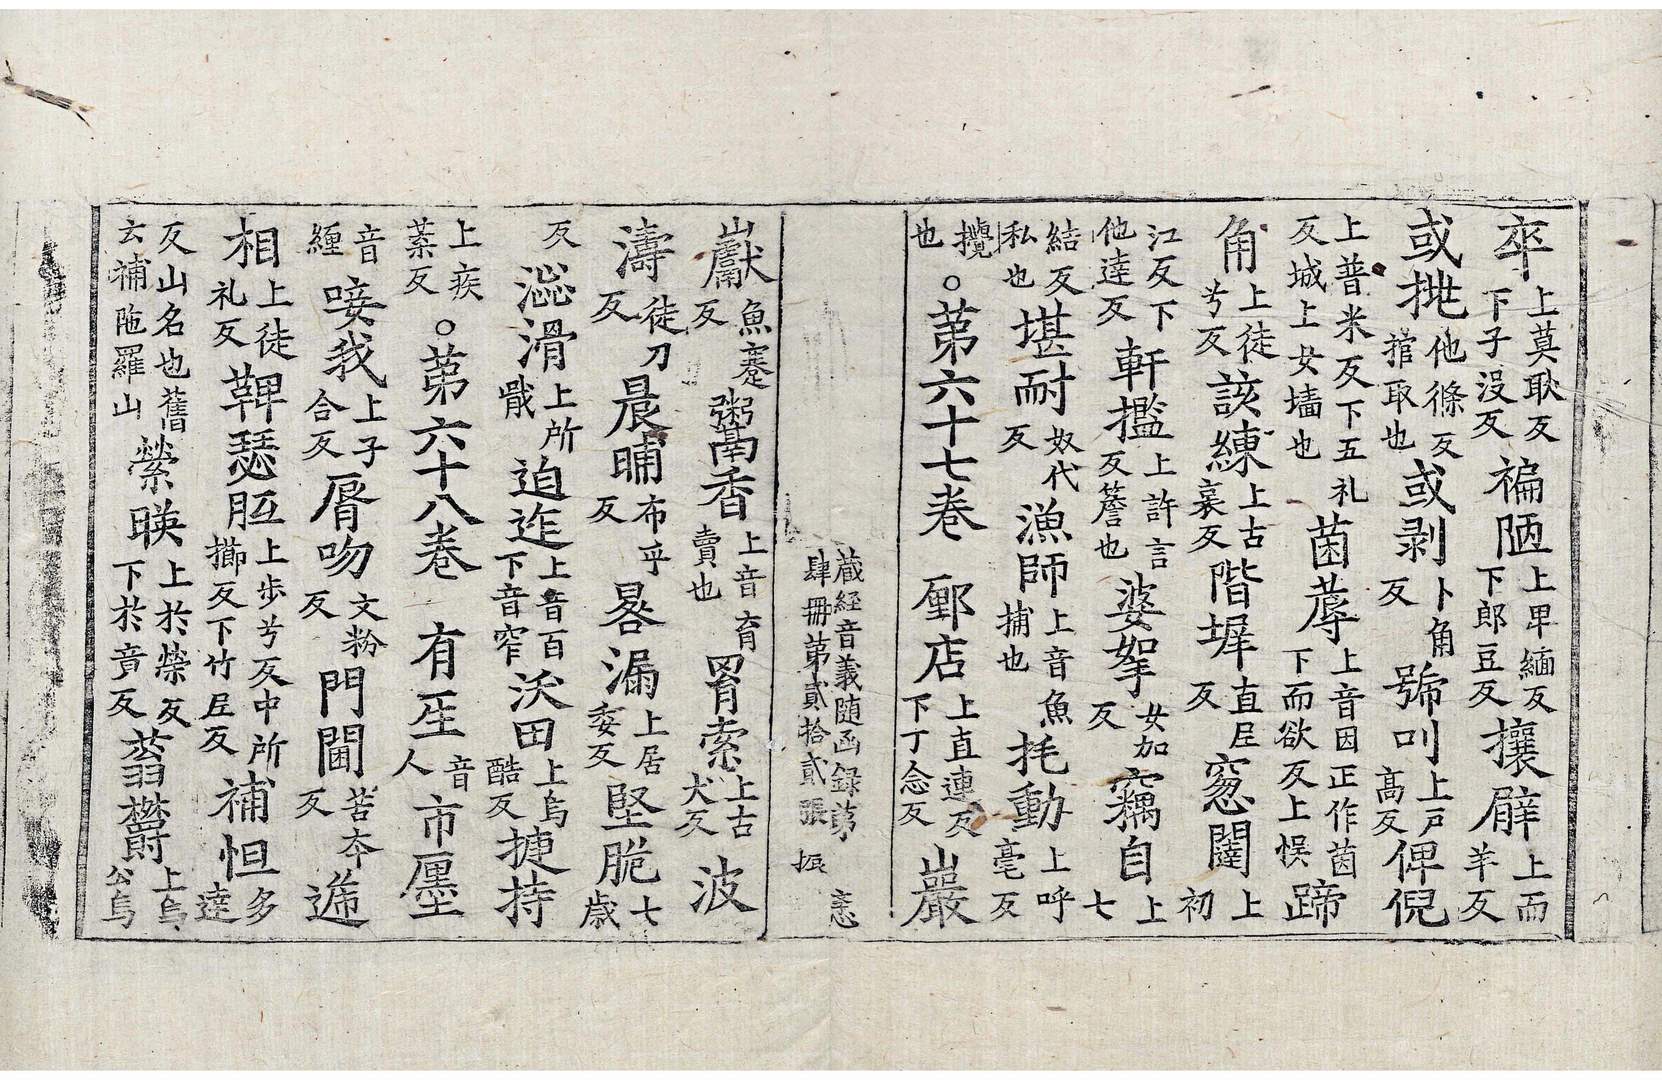 卒上莫耿反下子没反褊陋上卑緬反下郎豆反攘臂上而羊反
或𢱧他絛反揞取也或剥卜角反號叫上戸高反俾倪
上普米反下五礼反城上女墙也茵蓐上音因正作茵下而欲反上悮蹄
角上徒兮反該練上古襄反階墀直𡰱反窓闥上初
江反下他逹反軒檻上許言反簷也婆拏女加反竊自上七
結反私也堪耐奴代反漁師上音魚捕也㧌動上呼毫反
攪也。第六十七卷 鄽店上直連反下丁念反巖
巘魚蹇反鬻香上音育賣也罥索上古犬反波
濤徒刀反晨晡布乎反晷漏上居委反堅脆七歳
反澁滑上所戢反迫迮上音百下音窄沃田上烏酷反揵持
上疾葉反。第六十八卷 有𤯔音人市㕓
音纏唼我上子合反脣吻文粉反門閫苦夲反遞
相上徒礼反鞞瑟胝上歩兮反中所擳反下竹𡰱反補怛多逹
反山名也舊云補陁羅山縈暎上於榮反下於竟反蓊欝上烏公
藏経音義随函録第肆冊第貳拾貳張 振